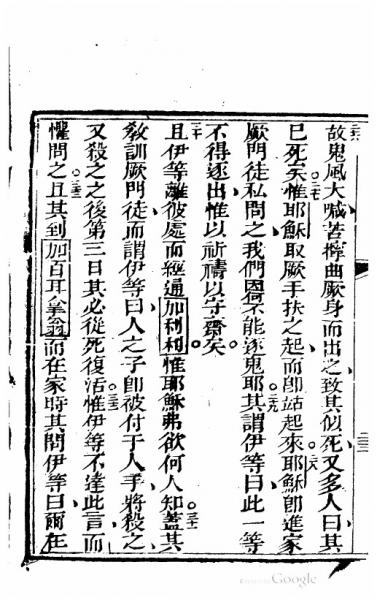 故鬼風大喊苦擰曲厥身而出之致其似死又多人曰其
已死矣惟耶穌取厥手扶之起而即站起來耶穌即進家
厥門徒私問之我們因何不能逐鬼耶其謂伊等曰此一等
不得逐出惟以祈禱以守齋矣
且伊等離彼處而經通加利利惟耶穌弗欲何人知蓋其
敎訓厥門徒而謂伊等曰人之子即被付于人手將殺之
又殺之之後第三日其必從死復活惟伊等不達此言而
懼問之且其到加百耳拿翁而在家時其問伊等曰爾在
Google